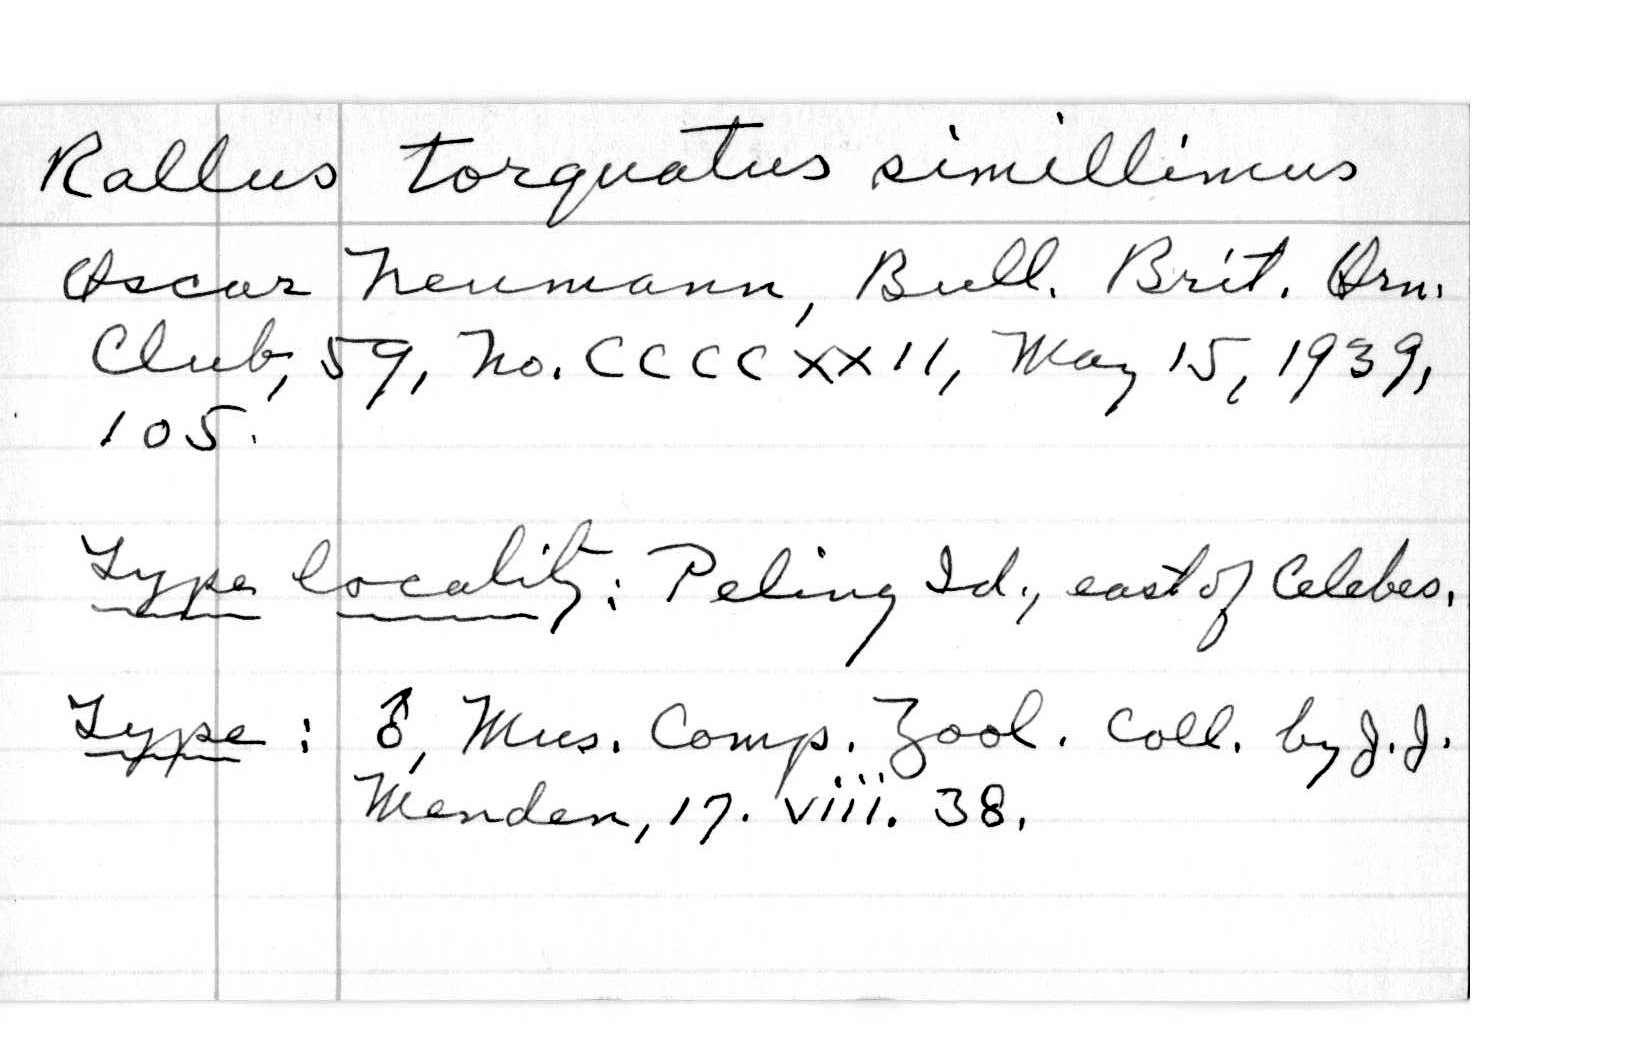 Rallus torquatus simillimus
Oscar Neumann, Bull. Brit. Orn.
Club, 59, No. CCCCXXII, May 15, 1939,
105.
Type locality: Peling Id., east of Celebes.
Type: ♂, Mus. Comp. Zool. Coll. by J. J.
Menden, 17. viii. 38.